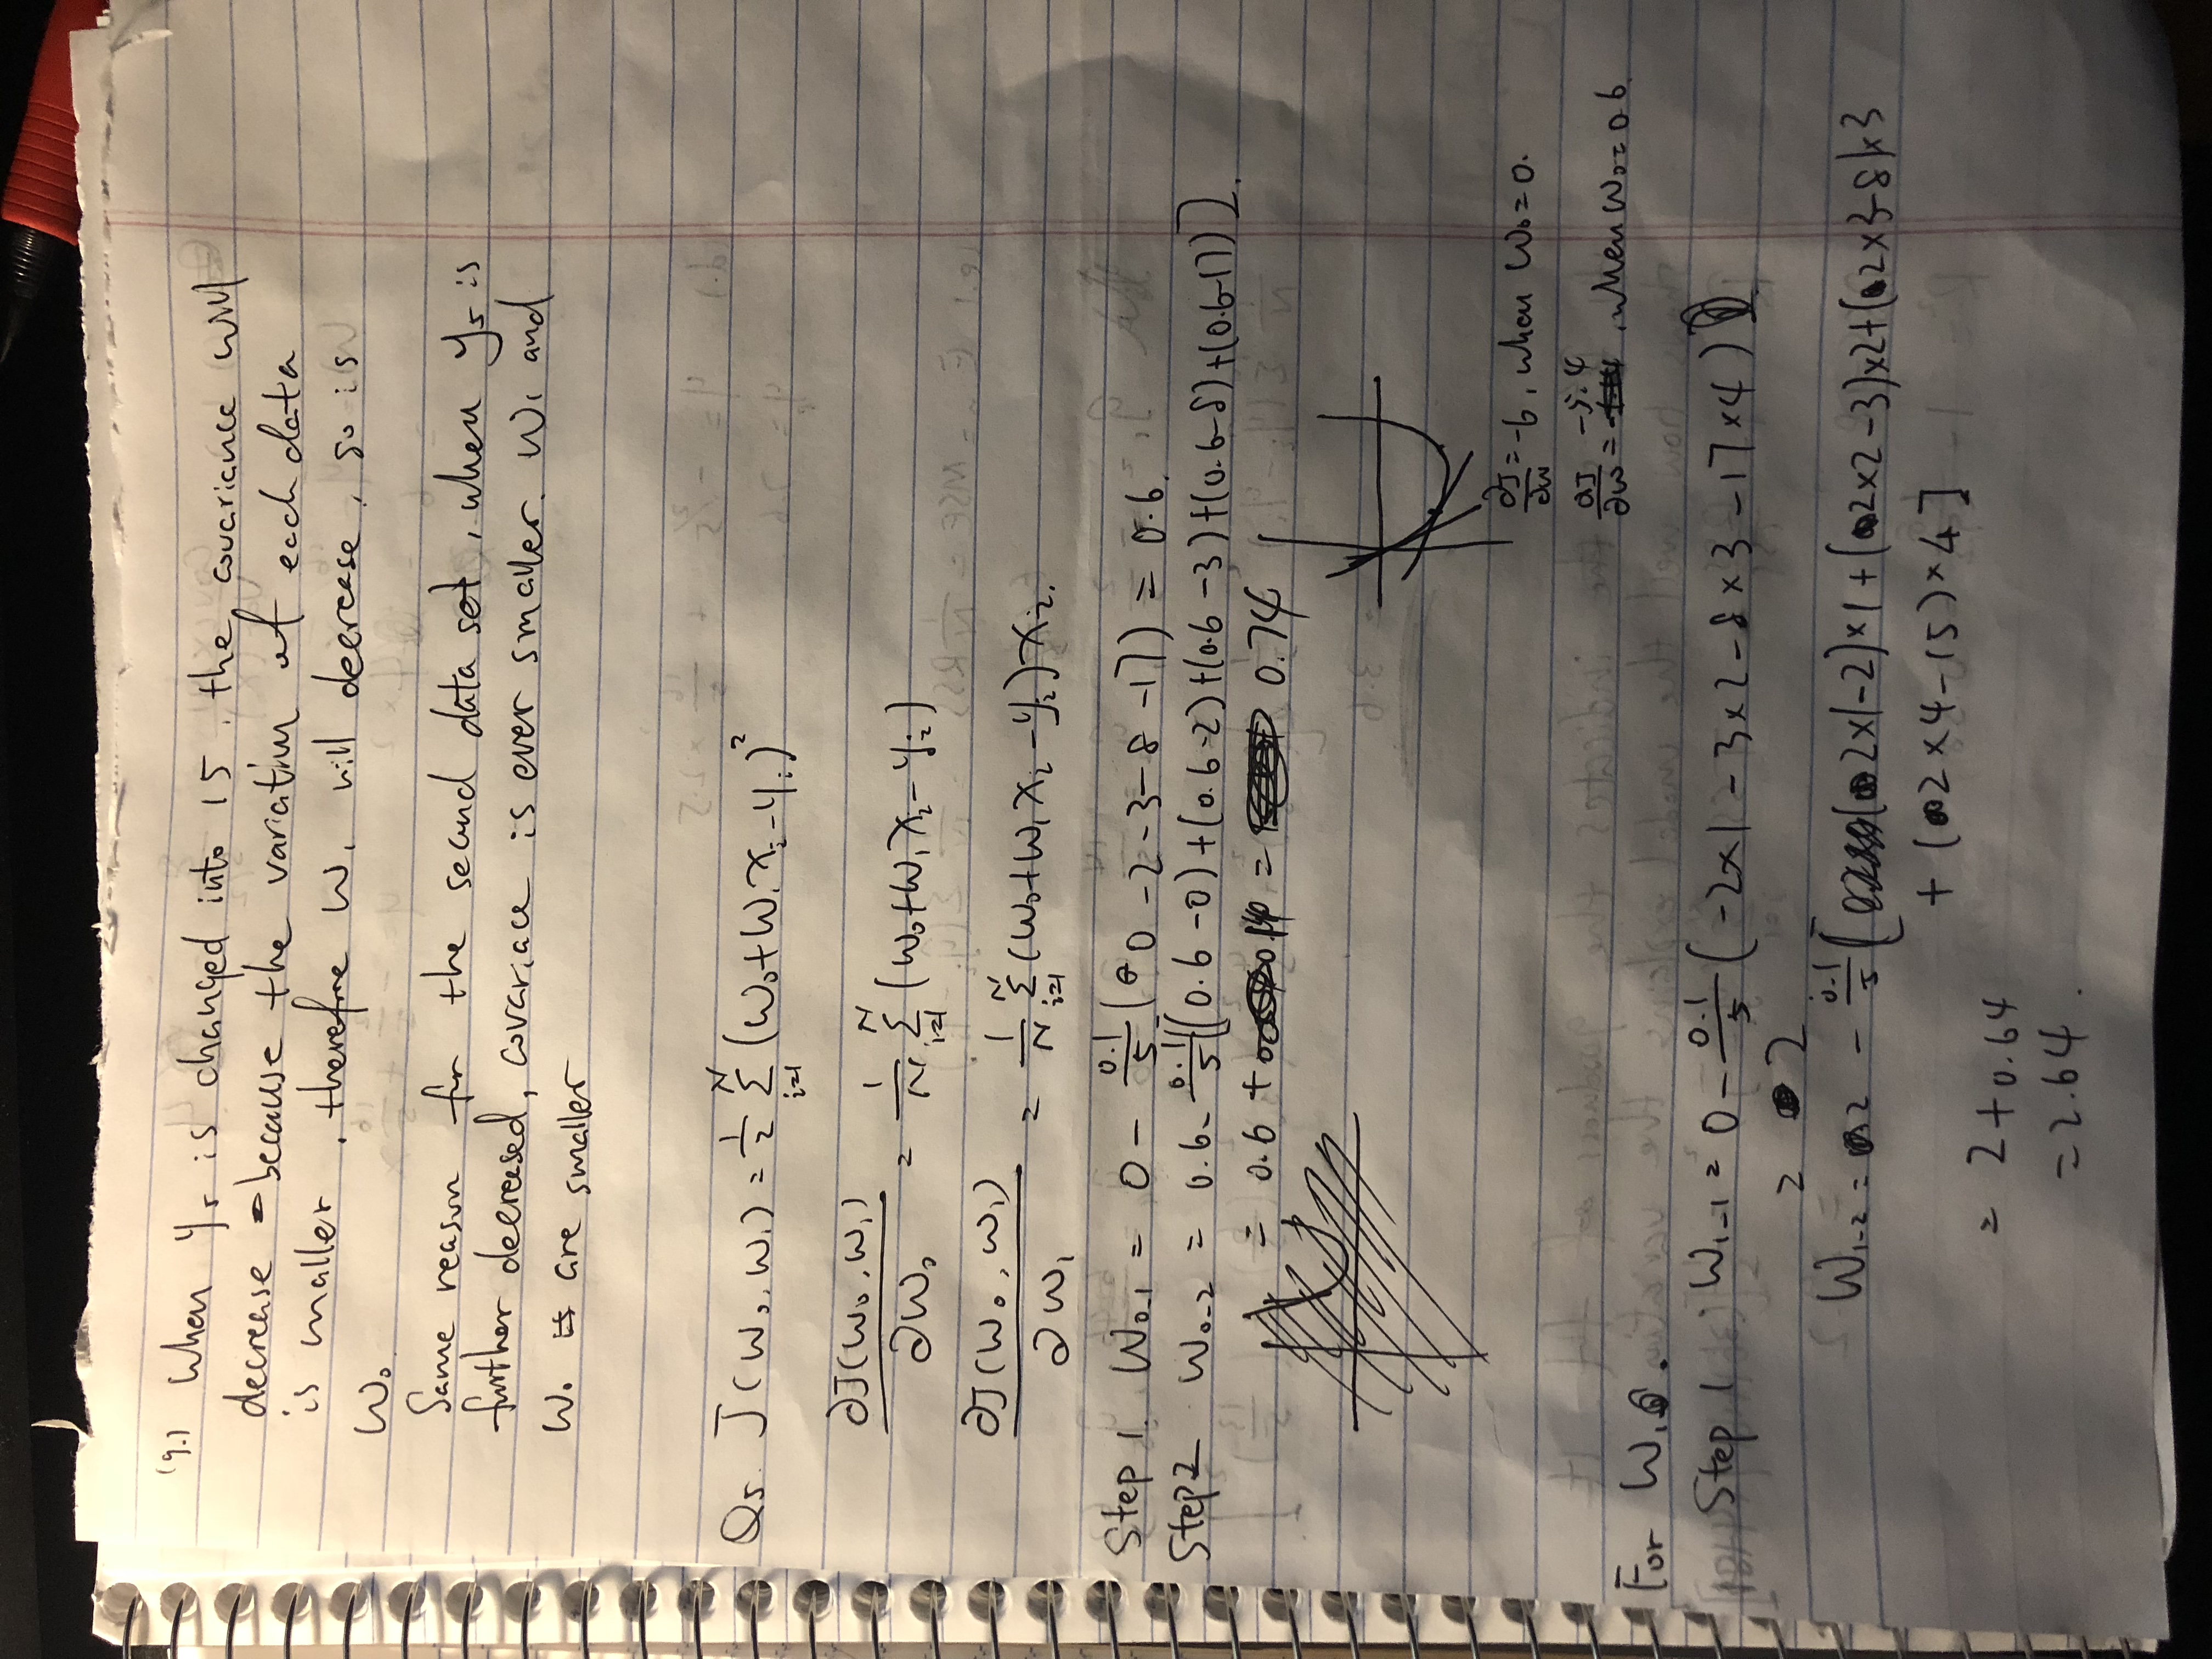 (g.) When y₅ is changed into 15, the covariance will
decrease because the variation of each data
is maller, therefore W₁ will decrease, so is
W₀
Same reason for the second data set, when y₅ is
further decreased, covariace is ever smaller. W₁ and
W₀ are smaller
Q5. J(W₀, W₁) = 1/2 Σ_{i=1}^{N} (W₀+W₁x_i-y_i)²
∂J(W₀, W₁)/∂W₀ = 1/N Σ_{i=1}^{N} (W₀+W₁x_i-y_i)
∂J(W₀, W₁)/∂W₁ = 1/N Σ_{i=1}^{N} (W₀+W₁x_i-y_i)x_i.
Step 1. W₀₋₁ = 0 - 0.1/5 (0-2-3-8-17) = 0.6.
Step 2 W₀₋₂ = 0.6 - 0.1/5[(0.6-0)+(0.6-2)+(0.6-3)+(0.6-8)+(0.6-17)].
= 0.6 + = 0.74
∂J/∂W = -6, when W₀=0.
∂J/∂W = -5.4, when W₀=0.6.
For W₁.
Step 1: W₁₋₁ = 0 - 0.1/5 (-2×1-3×2-8×3-17×4)
= 2
W₁₋₂ = 2 - 0.1/5 [(2×1-2)×1+(2×2-3)×2+(2×3-8)×3
+ (2×4-15)×4]
= 2+0.64
= 2.64.